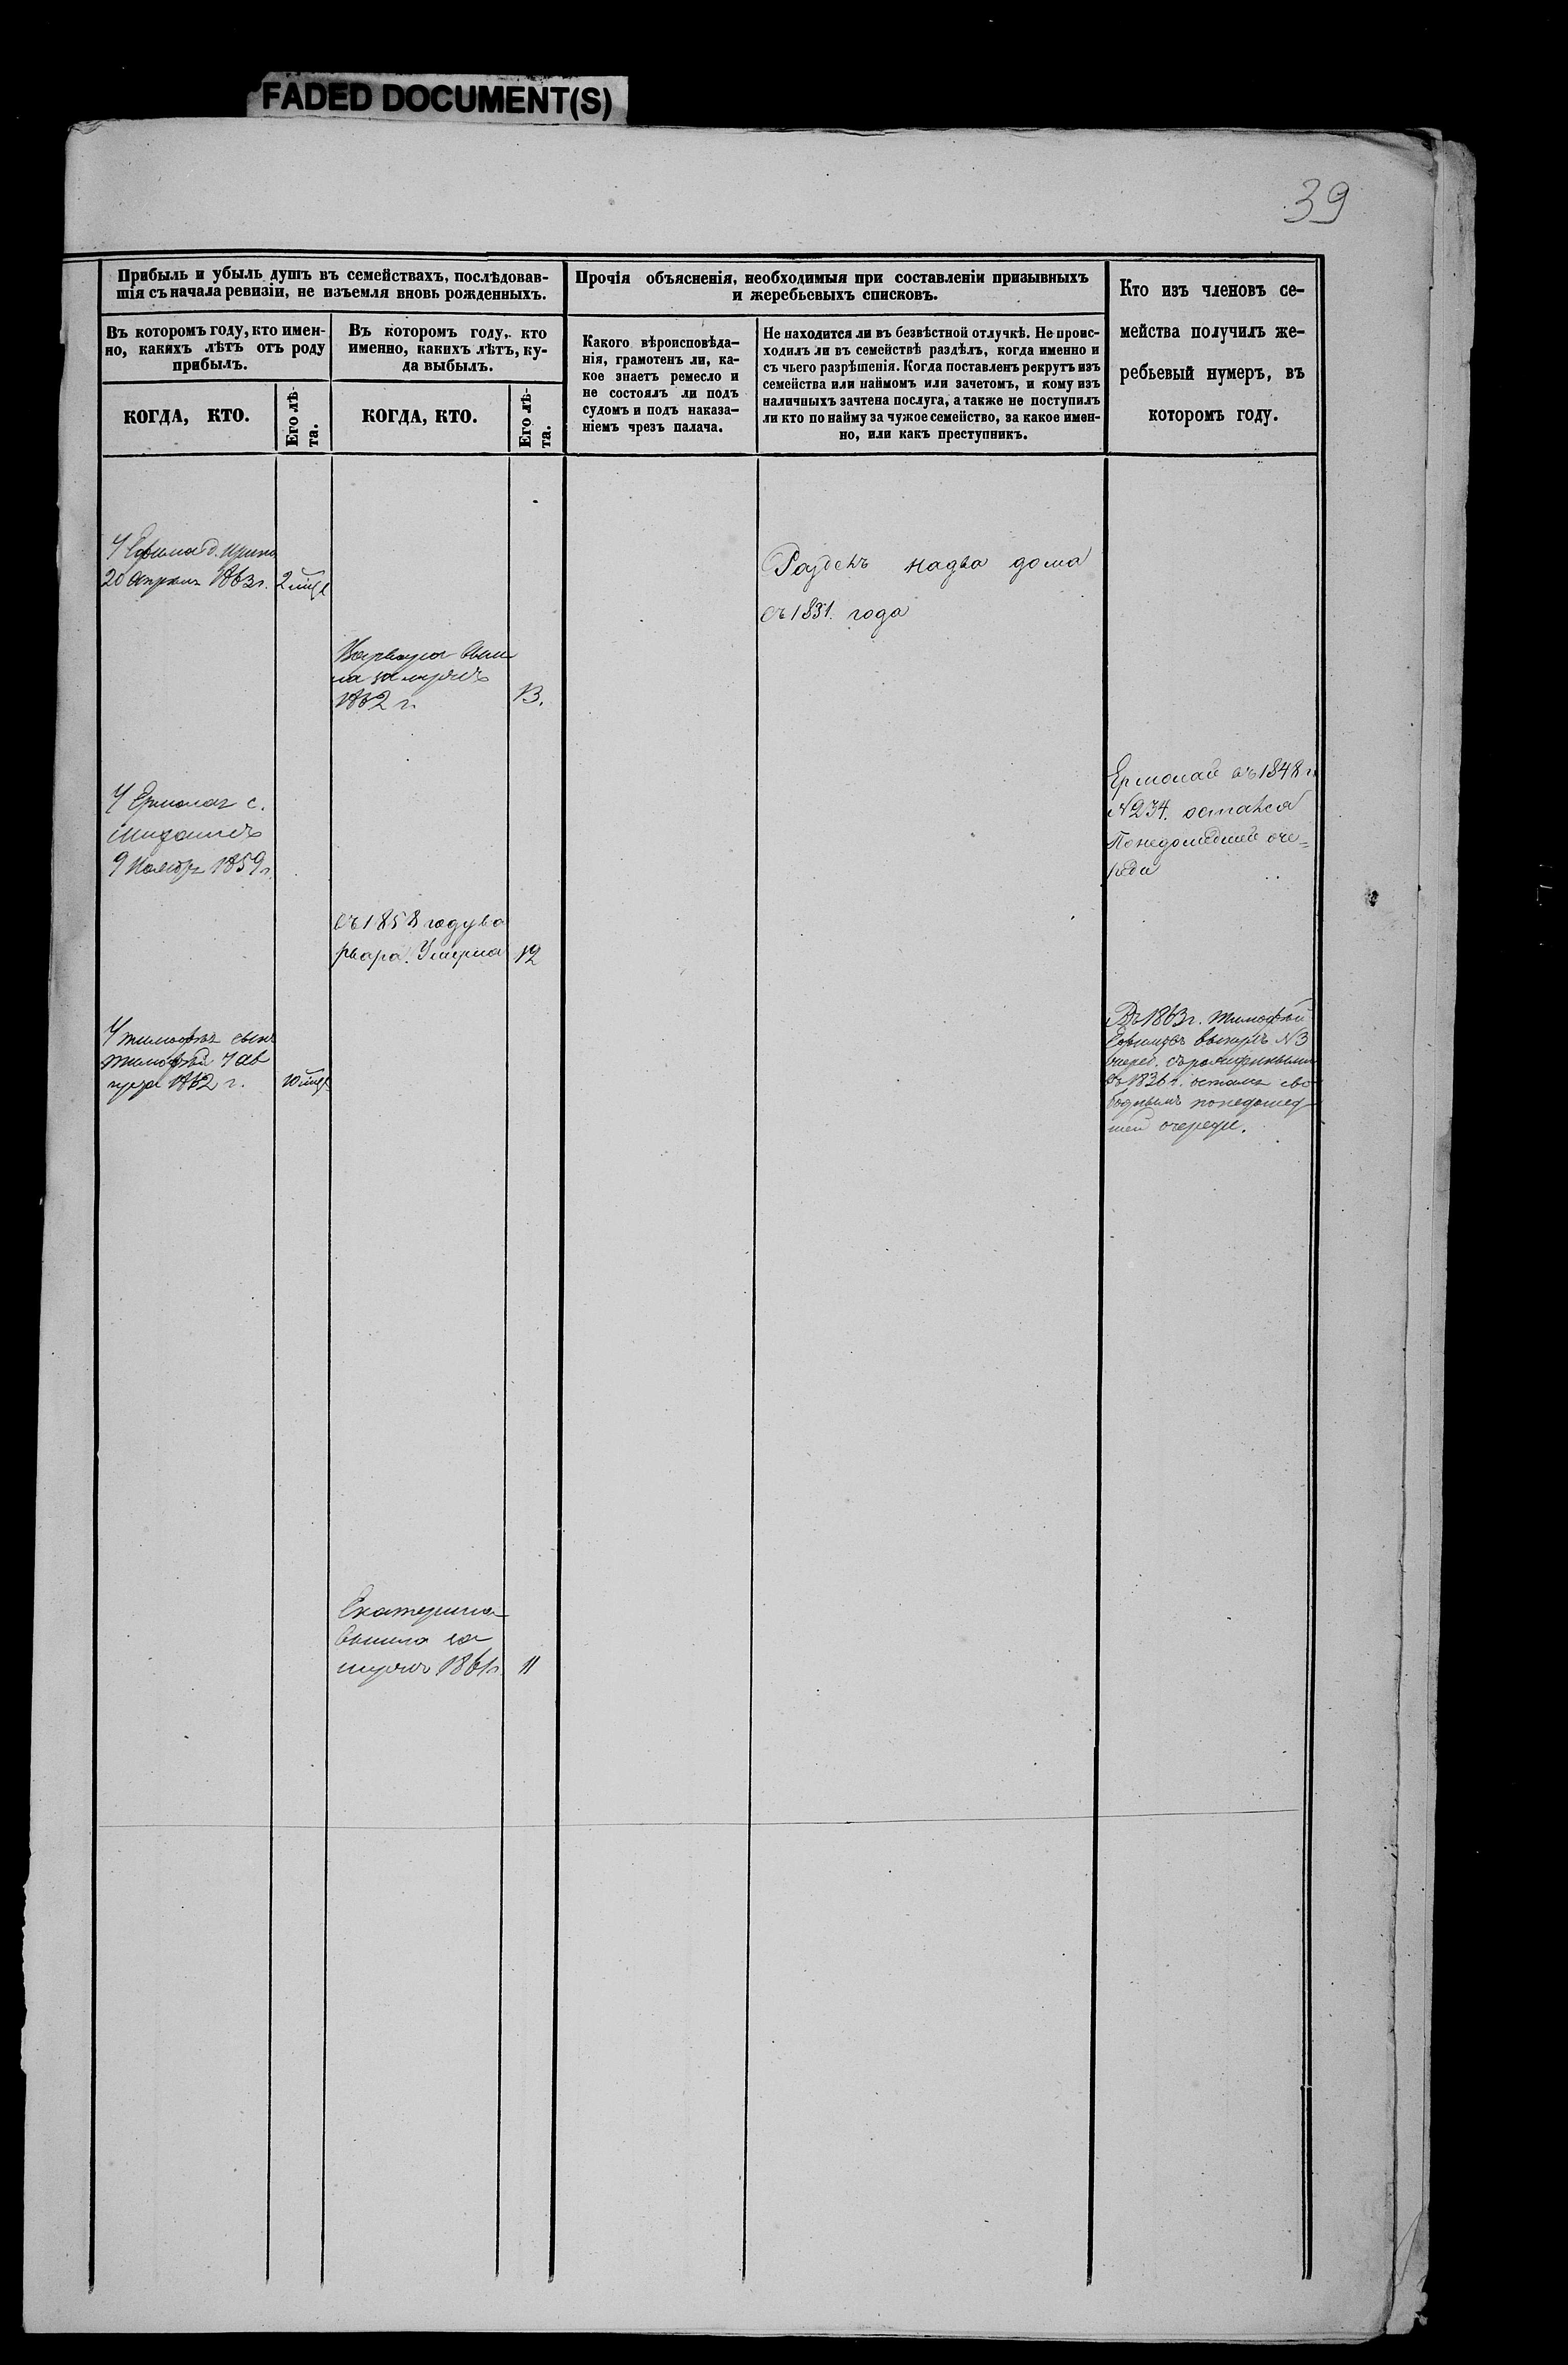 FADED DOCUMENT(S)
39
Прибыль и убыль душъ въ семействахъ, послѣдовав-
шія съ начала ревизіи, не изъемля вновь рожденныхъ.
Прочія объясненія, необходимыя при составленіи призывныхъ
и жеребьевыхъ списковъ.
Кто изъ членовъ се-
мейства получилъ же-
ребьевый нумеръ, въ
которомъ году.
Въ которомъ году, кто имен-
но, какихъ лѣтъ отъ роду
прибылъ.
Въ которомъ году, кто
именно, какихъ лѣтъ, ку-
да выбылъ.
Какого вѣроисповѣда-
нія, грамотенъ ли, ка-
кое знаетъ ремесло и
не состоялъ ли подъ
судомъ и подъ наказа-
ніемъ чрезъ палача.
Не находится ли въ безвѣстной отлучкѣ. Не проис-
ходилъ ли въ семействѣ раздѣлъ, когда именно и
съ чьего разрѣшенія. Когда поставленъ рекрутъ изъ
семейства или наймомъ или зачетомъ, и кому изъ
наличныхъ зачтена послуга, а также не поступилъ
ли кто по найму за чужое семейство, за какое имен-
но, или какъ преступникъ.
КОГДА, КТО.
Его лѣ-
та.
КОГДА, КТО.
Его лѣ-
та.
У Ефима д.
20 апрѣля 1863 г.
2
Раздел надва дома
съ 1831 года
Варвара выш
ла замужъ
1862 г.
13.
Ермолай въ 1848 г.
№ 234. остался
Понедошедшей оче=
реди
У Ермолая с.
9 Ноября 1859 г.
въ 1858 году ва
рвара. Умерла
12
У тимофея сынъ
тимофей 4 ав
густа 1862 г.
10
Въ 1863 г. тимофей
вынулъ № 3
очеред.
остался сво
боднымъ понедошед
шей очереди.
Екатерина
вышла за
мужъ 1861 г.
11